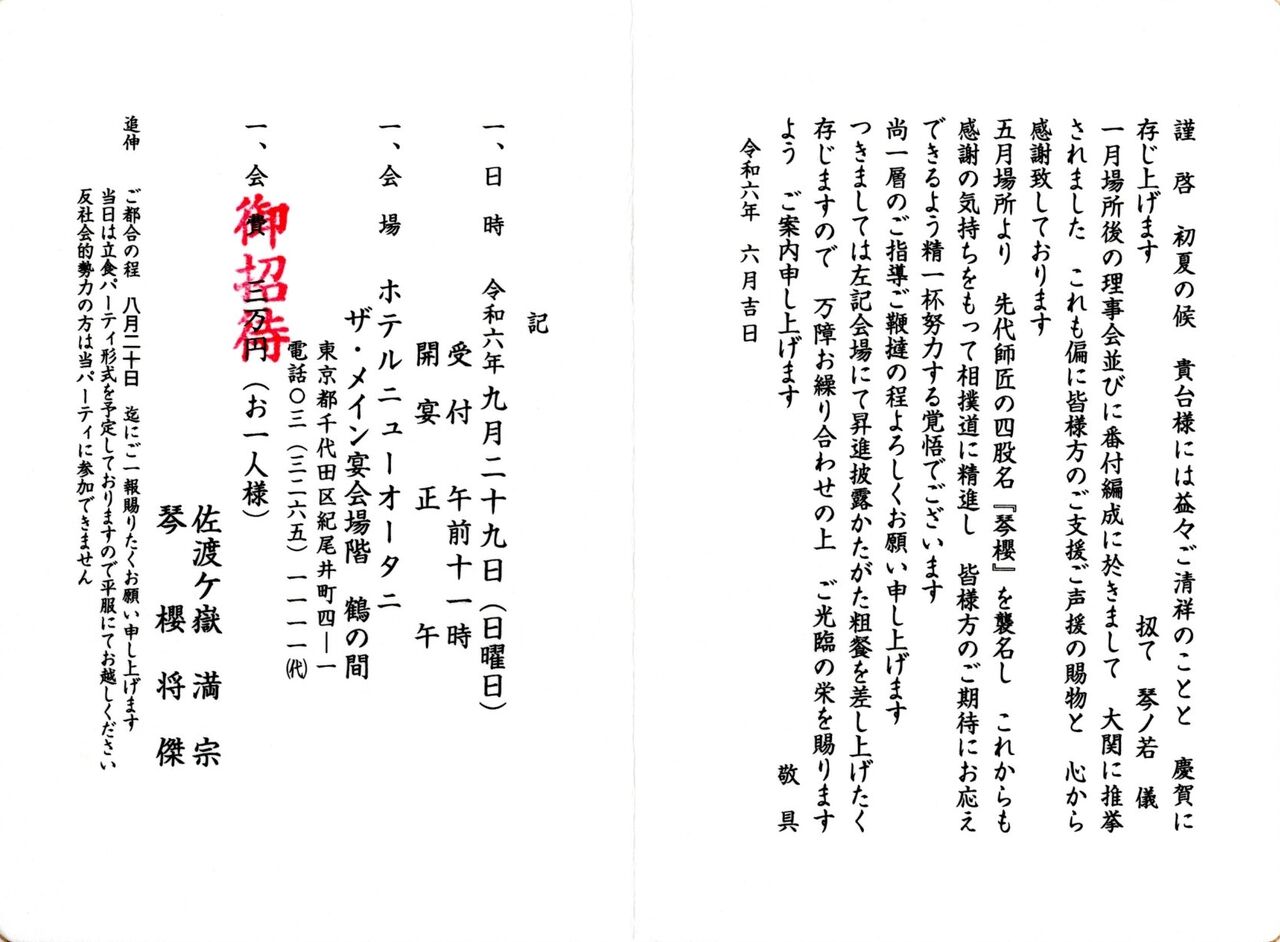 謹啓 初夏の候 貴台様には益々ご清祥のことと 慶賀に
存じ上げます
扨て 琴ノ若 儀
一月場所後の理事会並びに番付編成に於きまして 大関に推挙
されました これも偏に皆様方のご支援ご声援の賜物と 心から
感謝致しております
五月場所より 先代師匠の四股名『琴櫻』を襲名し これからも
感謝の気持ちをもって相撲道に精進し 皆様方のご期待にお応え
できるよう精一杯努力する覚悟でございます
尚一層のご指導ご鞭撻の程よろしくお願い申し上げます
つきましては左記会場にて昇進披露かたがた粗餐を差し上げたく
存じますので 万障お繰り合わせの上 ご光臨の栄を賜ります
よう ご案内申し上げます
敬具
令和六年 六月吉日
記
一、日時 令和六年九月二十九日(日曜日)
受付 午前十一時
開宴 正午
一、会場 ホテルニューオータニ
ザ・メイン宴会場階 鶴の間
東京都千代田区紀尾井町四―一
電話〇三(三二六五)一一一一㈹
一、会費 三万円(お一人様)
御招待
佐渡ケ嶽満宗
琴櫻将傑
追伸 ご都合の程 八月二十日 迄にご一報賜りたくお願い申し上げます
当日は立食パーティ形式を予定しておりますので平服にてお越しください
反社会的勢力の方は当パーティに参加できません